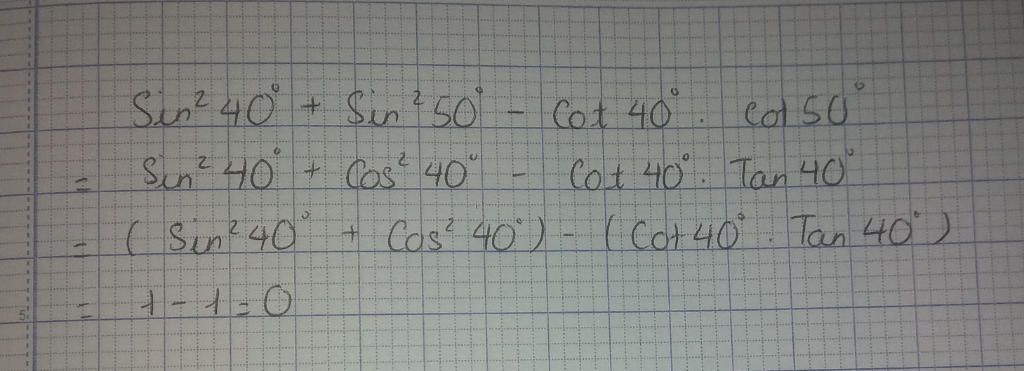 Sin² 40° + Sin² 50° - Cot 40° . Cot 50°
= Sin² 40° + Cos² 40° - Cot 40° . Tan 40°
= ( Sin² 40° + Cos² 40° ) - ( Cot 40° . Tan 40° )
= 1 - 1 = 0
5